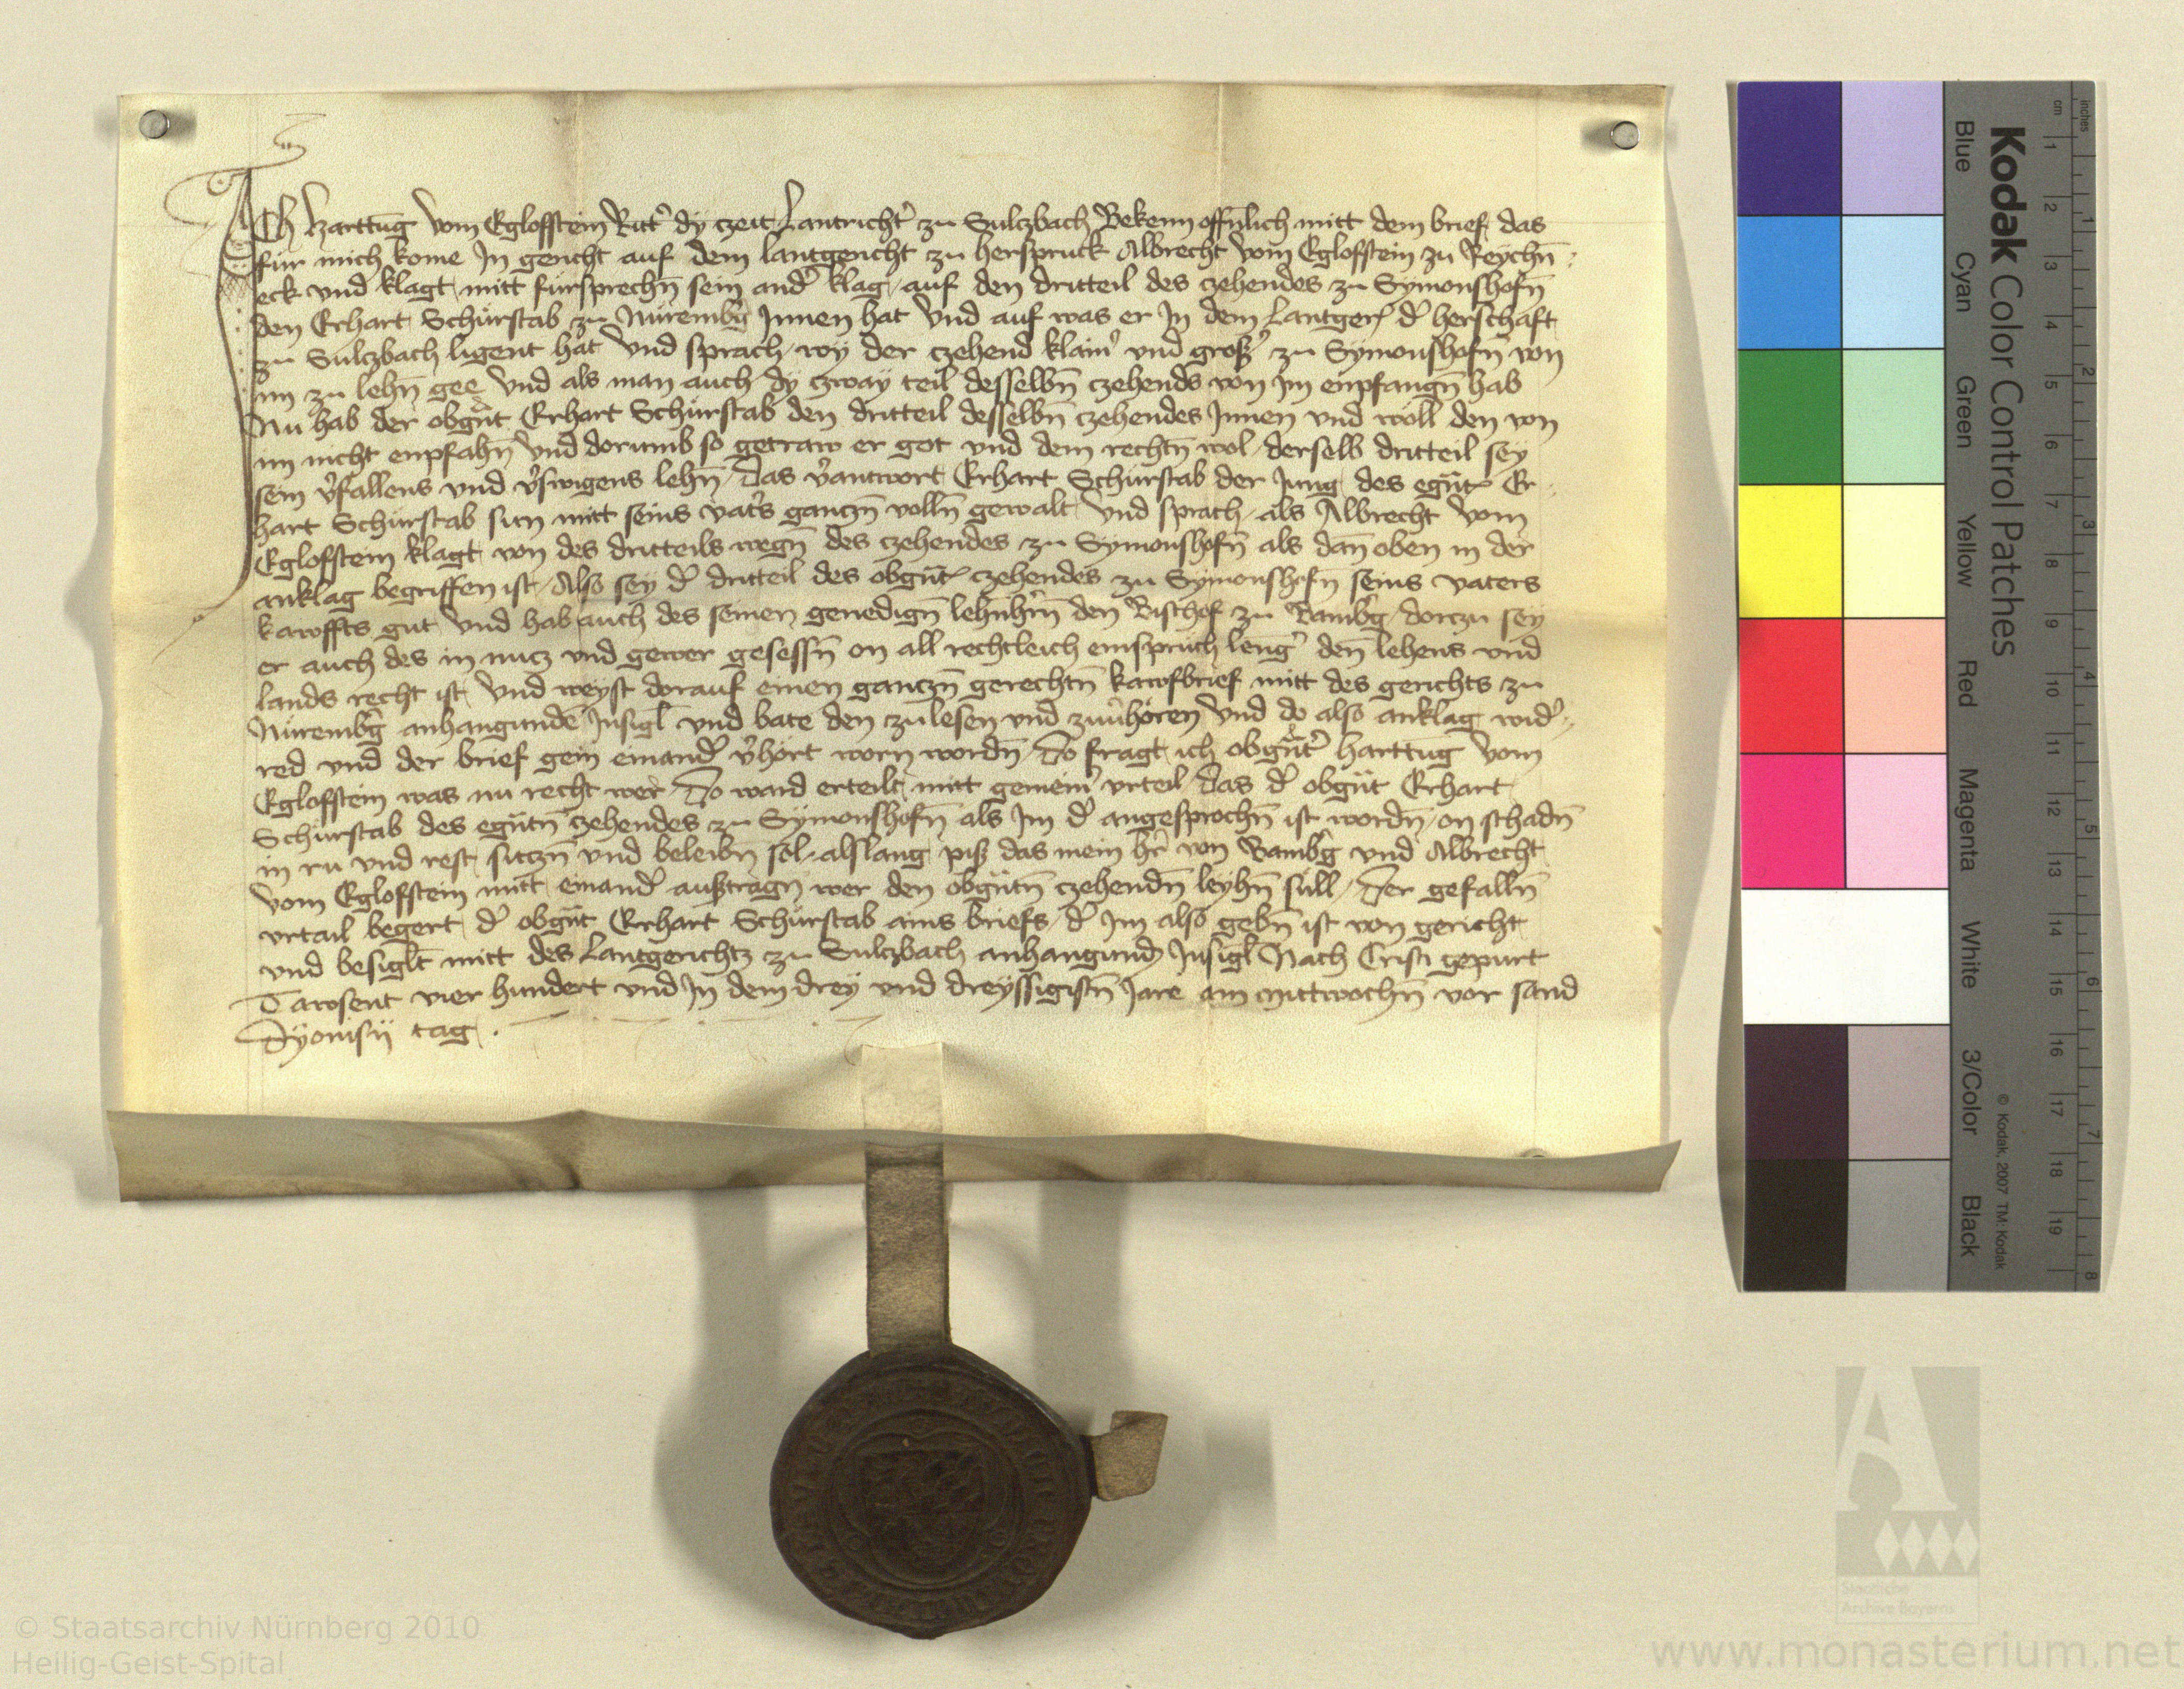 Ich Harttūg vom Eglofstein Ritt' dÿ czeit Lantricht' zu Sulczbach Bekenn offnlich mitt dem brief das
für mich kome In gericht auf dem lantgericht zu herspruck Albrecht vom Eglofstein zu Reychn̄
eck vnd klagt mitt fürsprechn̄ sein and' klag auf den dritteil des czehendes zu Sÿmonshofn̄
den Erhart Schürstab zu Nüremb'g Innen hat Vnd auf was er In dem Lantger' d' herschaft
zu Sulczbach ligent hat Vnd sprach wÿ der czehend klain' vnd groß' zu Sÿmonshofn̄ von
im zu lehn̄ gee Vnd als man auch dÿ czwaÿ teil desselbn̄ czehends von Im enpfangn̄ hab
Nu hab der obgn̄t Erhart Schürstab den dritteil desselbn̄ czehendes Innen vnd wöll den von
im nicht enpfahn̄ Vnd dorumb so getraw er got vnd dem rechtn̄ wol derselb dritteil seÿ
sein v'fallens vnd v'swigens lehn̄ Das v'antwort Erhart Schürstab der Jung des egn̄t Er
hart Schürstab sun mitt seins vat's ganczn̄ volln̄ gewalt Vnd sprach als Albrecht vom
Eglofstein klagt von des dritteils wegn̄ des czehendes zu Sÿmonshofn̄ als dan̄ oben in der
anklag begriffen ist Also seÿ d' dritteil des obgn̄t czehendes zu Sÿmonshofn̄ seins vaters
kawffts gut Vnd hab auch des seinen genedign̄ lehnhr̄n den Bischof zu Bamb'g dorzu seÿ
er auch des in nucz vnd gewer gesessn̄ on all rechtleich einspruch leng' den̄ lehens vnd
lands recht ist Vnd weÿst dorauf einen ganczn̄ gerechtn̄ kawfbrief mitt des gerichts zu
Nüremb'g anhangundē Insigl Vnd bate den zulesen vnd zuu'hören Vnd do also anklag wid'
red vnd der brief gein einand' v'hört worn wordn̄ Do fragt ich obgn̄t' harttūg vom
Eglofstein was nu recht wer Do ward erteilt mitt gemein' vrteil Das d' obgn̄t Erhart
Schürstab des egn̄tn czehendes zu Sÿmonshofn̄ als Im d' angesprochn̄ ist wordn̄ on schadn̄
in ru vnd rest siczn̄ vnd beleibn sol alslang piß das mein hr̄ von Bamb'g vnd Albrecht
vom Eglofstein mitt einand' außtragn̄ wer den obgn̄tn̄ czehendn̄ leÿhn̄ süll Der gefalln̄
vrtail begert d' obgn̄t Erhart Schürstab ains briefs d' Im also gebn̄ ist von gericht
vnd besiglt mitt des Lantgerichtz zu Sulczbach anhangund Insigl Nach Cristi gepurt
Tawsent vier hundert vnd In dem dreÿ vnd dreÿssigistn̄ Jare am mittwochn̄ vor sand
Dÿonisii tag
Kodak Color Control Patches
Blue Cyan Green Yellow Red Magenta White 3/Color Black
© Kodak, 2007 TM: Kodak
cm 1 2 3 4 5 6 7 8 9 10 11 12 13 14 15 16 17 18 19
inches 1 2 3 4 5 6 7 8
Staatliche
Archive Bayerns
© Staatsarchiv Nürnberg 2010
Heilig-Geist-Spital
www.monasterium.net